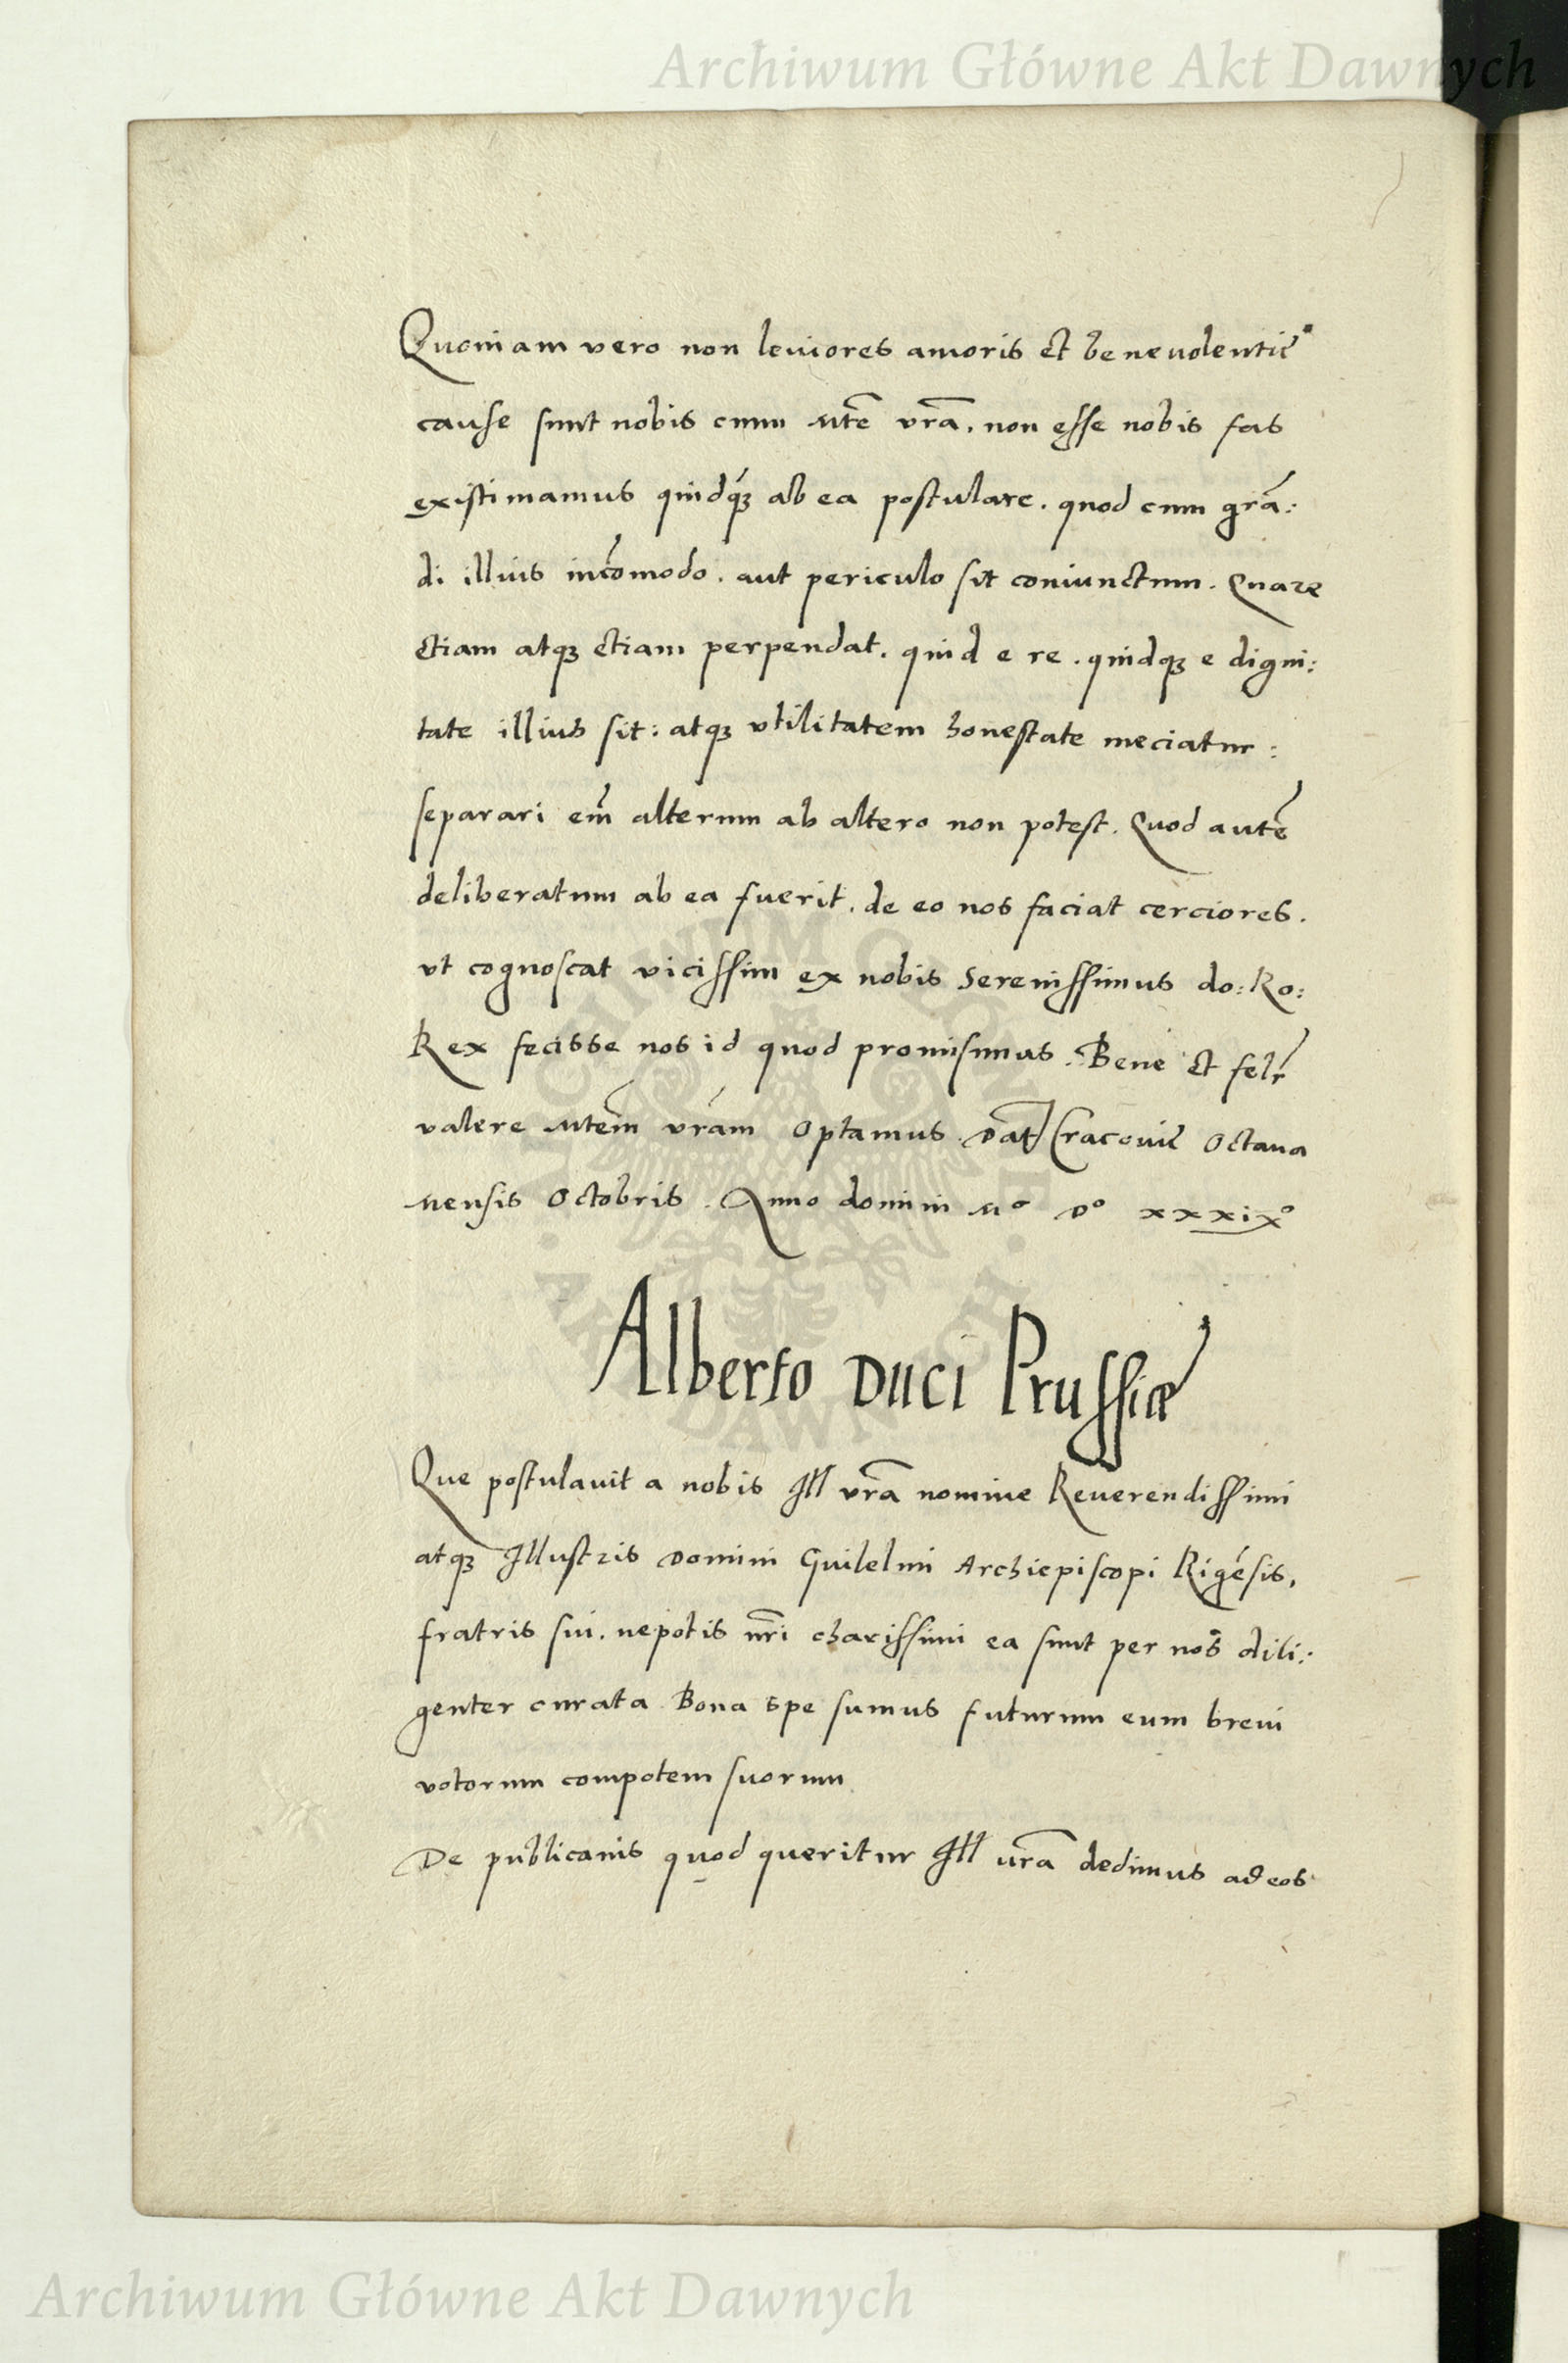 Archiwum Główne Akt Dawnych
Quoniam vero non leuiores amoris et beneuolentie
cause sunt nobis cum Mte vra. non esse nobis fas
existimamus quidq́ꝫ ab ea postulare. quod cum grā:
di illius incōmodo. aut periculo sit coniunctum. Quare
etiam atqꝫ etiam perpendat. quid e re. quidqꝫ e digni:
tate illius sit: atqꝫ vtilitatem honestate meciatur:
separari em̄ alterum ab altero non potest. Quod autē
deliberatum ab ea fuerit. de eo nos faciat cerciores.
vt cognoscat vicissim ex nobis Serenissimus do: Ro:
Rex fecisse nos id quod promisimus. Bene et felr
valere Mtem̄ vrām Optamus. Dat Cracouie Octaua
Mensis Octobris. Anno domini Mº Dº xxxixº
Alberto Duci Prussiæ
Que postulauit a nobis Ill vrā nomine Reuerendissimi
atqꝫ Illustris Domini Guilelmi Archiepiscopi Rigēsis,
fratris sui. nepotis nr̄i charissimi ea sunt per nos dili:
genter curata Bona spe sumus futurum eum breui
votorum compotem suorum
De publicanis quod queritur Ill vrā dedimus ad eos
ARCHIWUM GŁÓWNE
AKT DAWNYCH
Archiwum Główne Akt Dawnych